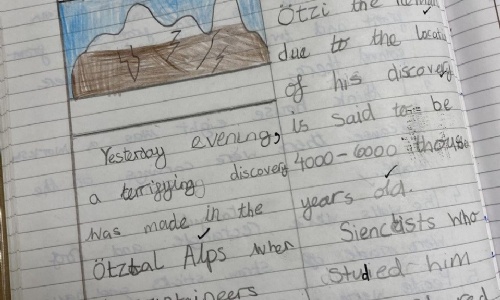 Yesterday evening,
a terrifying discovery
was made in the
Ötztal Alps when
Ötzi the
due to the
of his discovery
is said to be
4000-6000
years old.
Siencetists who
studied him